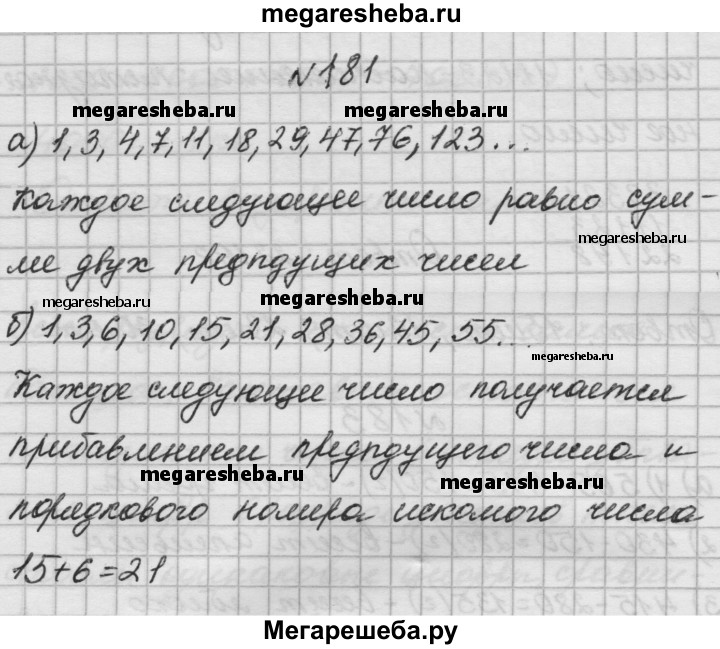 megaresheba.ru
№181
megaresheba.ru megaresheba.ru
а) 1, 3, 4, 7, 11, 18, 29, 47, 76, 123...
Каждое следующее число равно сум-
megaresheba.ru
ме двух предыдущих чисел
megaresheba.ru megaresheba.ru
б) 1, 3, 6, 10, 15, 21, 28, 36, 45, 55...
megaresheba.ru
Каждое следующее число получается
прибавлением предыдущего числа и
megaresheba.ru megaresheba.ru
порядкового номера искомого числа
15+6=21
Мегарешеба.ру